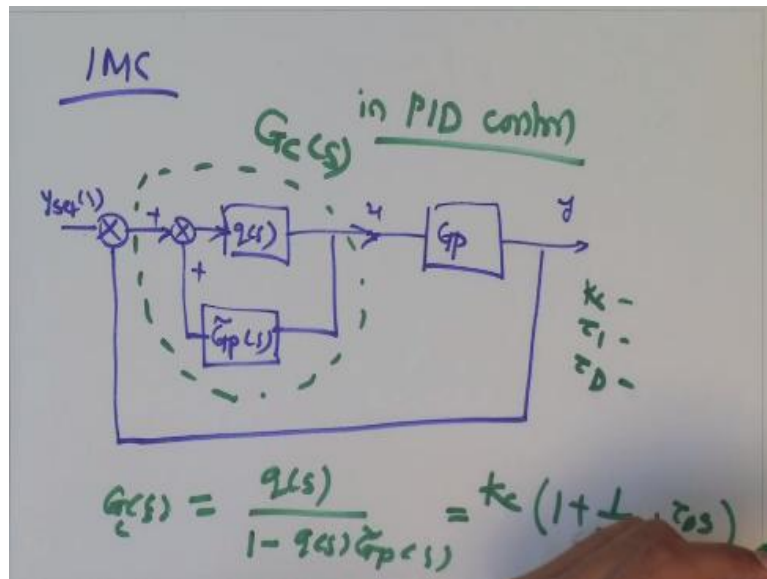 IMC
in PID contrn
Gc(s)
yset(s)
+
+
q(s)
u
Gp
y
G̃p(s)
kc -
τI -
τD -
Gc(s) = q(s) / 1 - q(s)G̃p(s) = kc (1 + 1 τDs)